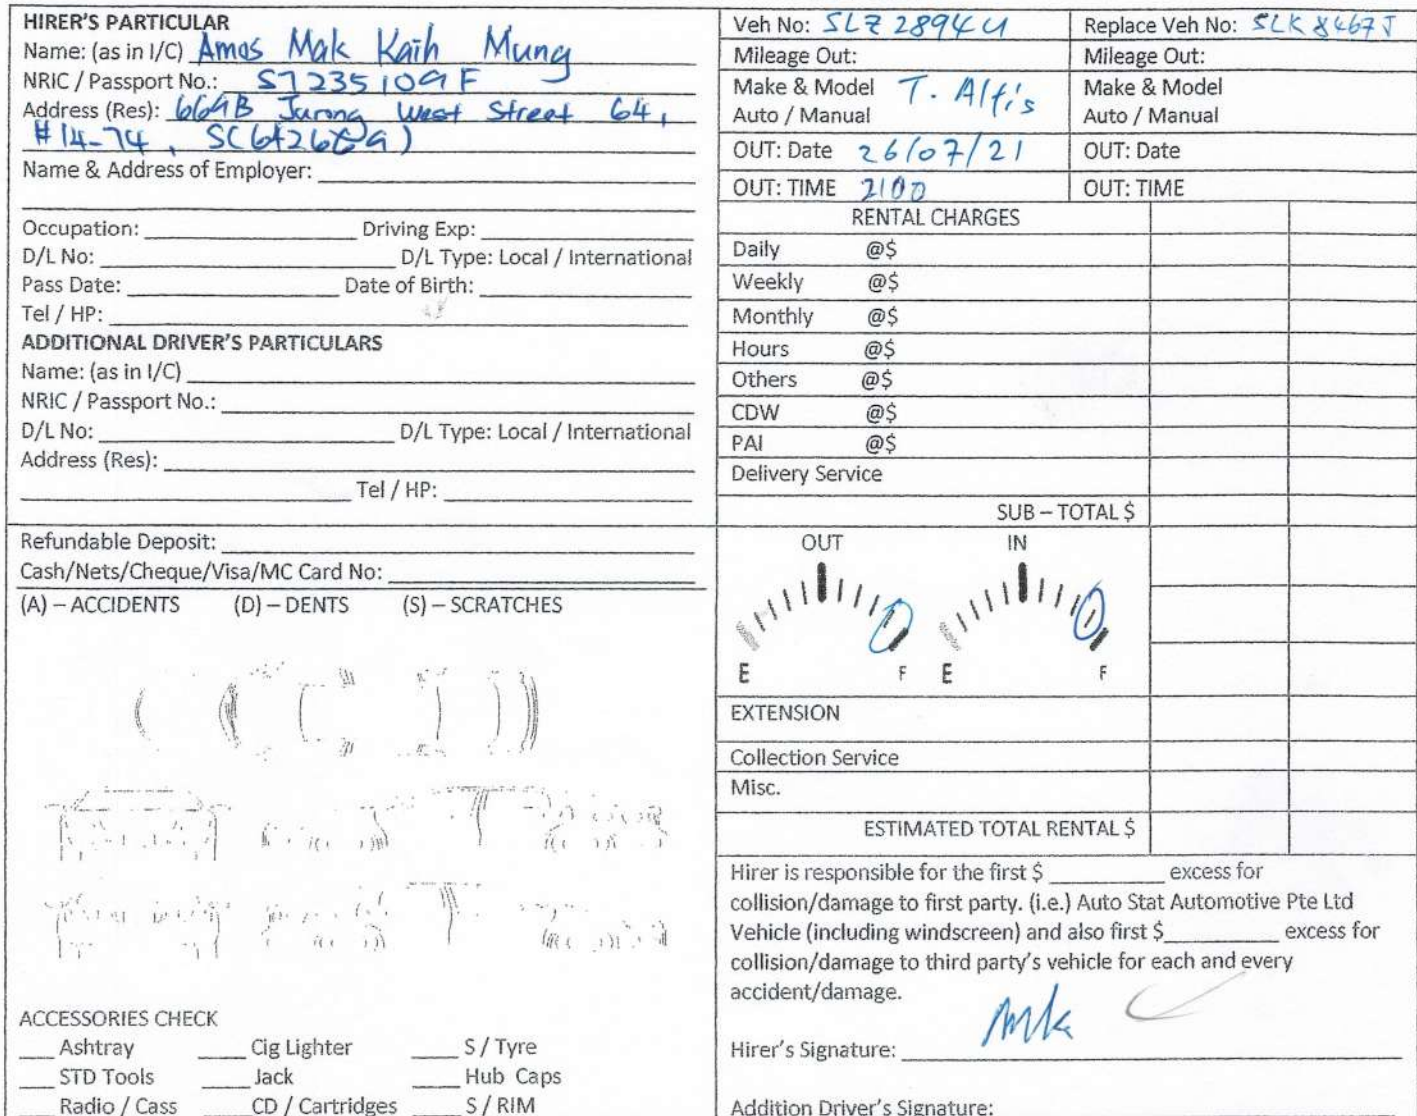 HIRER'S PARTICULAR
Name: (as in I/C) Amos Mak Kaih Mung
NRIC / Passport No.: S7235109F
Address (Res): 669B Jurong West Street 64,
#14-74,
Name & Address of Employer:
Occupation: Driving Exp:
D/L No: D/L Type: Local / International
Pass Date: Date of Birth:
Tel / HP:
ADDITIONAL DRIVER'S PARTICULARS
Name: (as in I/C)
NRIC / Passport No.:
D/L No: D/L Type: Local / International
Address (Res):
Tel / HP:
Refundable Deposit:
Cash/Nets/Cheque/Visa/MC Card No:
(A) – ACCIDENTS (D) – DENTS (S) – SCRATCHES
ACCESSORIES CHECK
Ashtray Cig Lighter S / Tyre
STD Tools Jack Hub Caps
Radio / Cass CD / Cartridges S / RIM
Veh No: SLZ 2894U Replace Veh No: SLK 8467J
Mileage Out: Mileage Out:
Make & Model T. Altis Make & Model
Auto / Manual Auto / Manual
OUT: Date 26/07/21 OUT: Date
OUT: TIME 2100 OUT: TIME
RENTAL CHARGES
Daily @$
Weekly @$
Monthly @$
Hours @$
Others @$
CDW @$
PAI @$
Delivery Service
SUB – TOTAL $
OUT IN
E F E F
EXTENSION
Collection Service
Misc.
ESTIMATED TOTAL RENTAL $
Hirer is responsible for the first $ excess for
collision/damage to first party. (i.e.) Auto Stat Automotive Pte Ltd
Vehicle (including windscreen) and also first $ excess for
collision/damage to third party's vehicle for each and every
accident/damage.
Hirer's Signature:
Addition Driver's Signature: